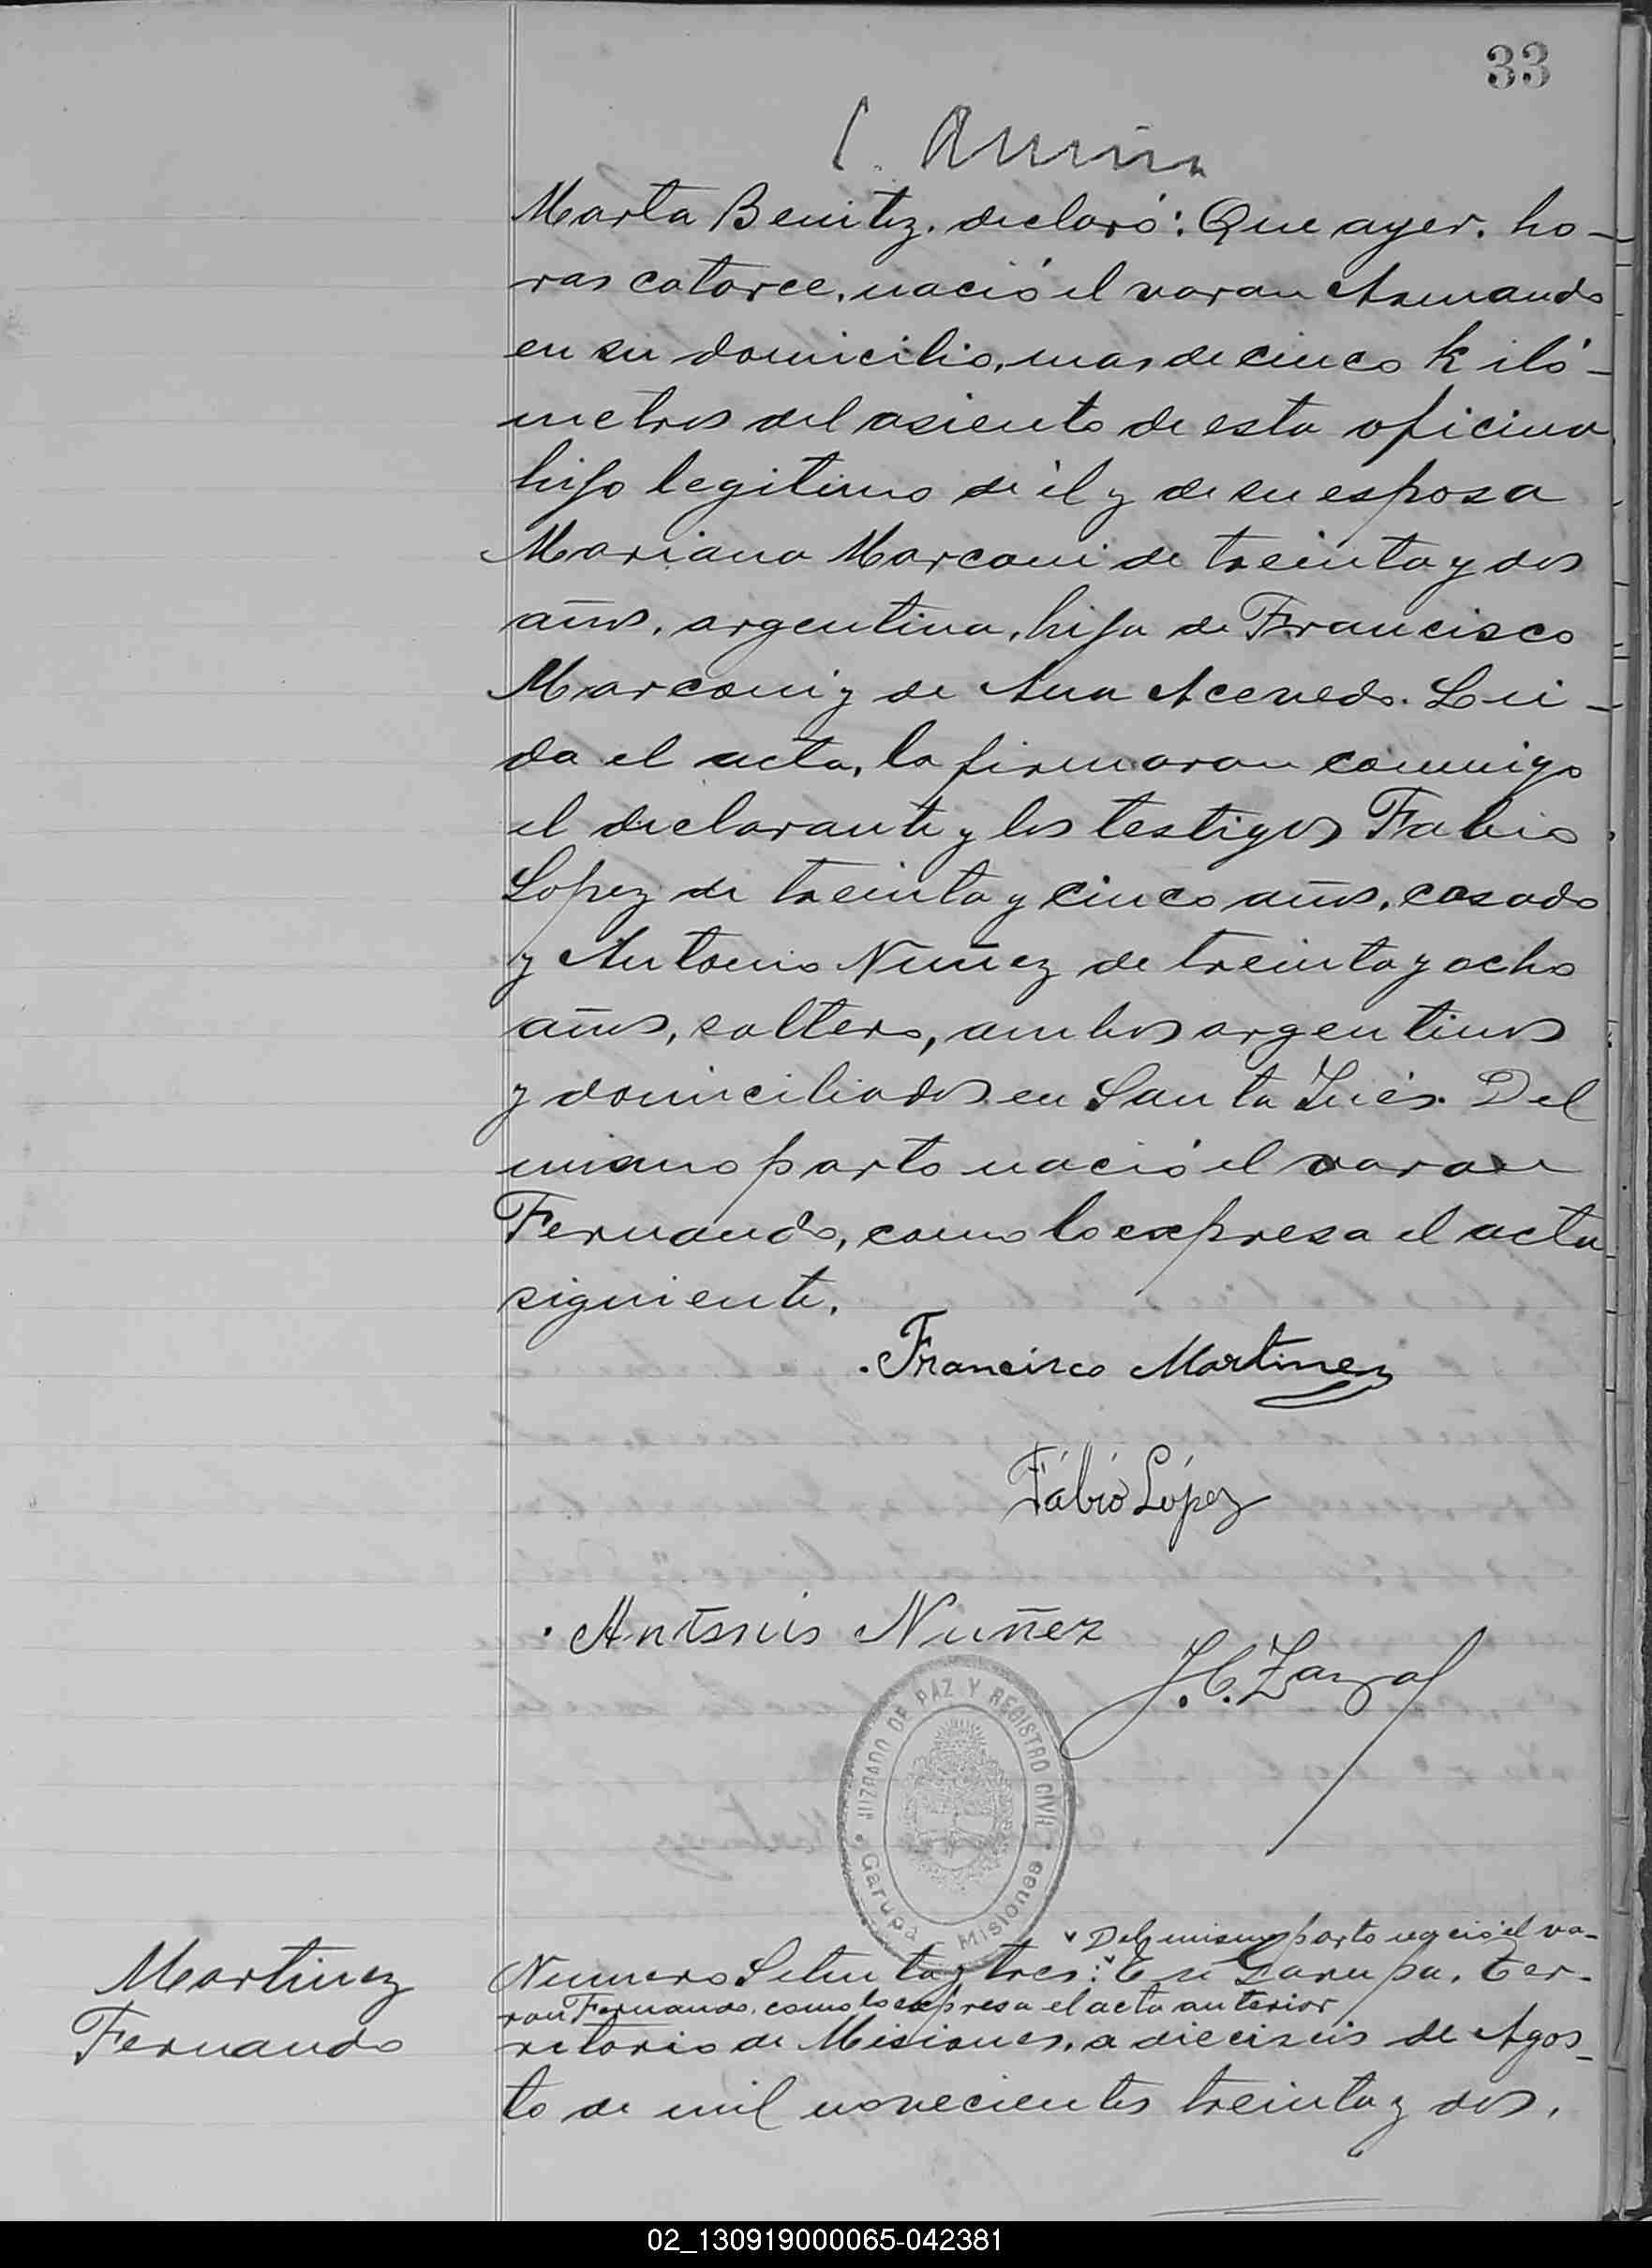 33
Marta Benitez. declaró: Que ayer. ho-
ras catorce. nació el varon Armando
en su domicilio, mas de cinco kiló-
metros del asiento de esta oficina
hijo legitimo de él y de su esposa
Mariana Marconi de treinta y dos
años, argentina, hija de Francisco
Marconi y de Ana Acevedo. Leí-
da el acta, la firmaron conmigo
el declarante y los testigos Fabio
Lopez de treinta y cinco años, casado
y Antonio Nuñez de treinta y ocho
años, soltero, ambos argentinos
y domiciliados en Santa Inés. Del
mismo parto nació el varon
Fernando, como lo expresa el acta
siguiente.
Francisco Martinez
Fábió López
Antonio Nuñez
JUZGADO DE PAZ Y REGISTRO CIVIL
Garupá - Misiones
Martinez
Fernando
Del mismo parto nació el va-
Numero Setenta y tres: En Garupa, Ter-
ron Fernando, como lo expresa el acta anterior
ritorio de Misiones, a dieciseis de Agos-
to de mil novecientos treinta y dos,
02_130919000065-042381